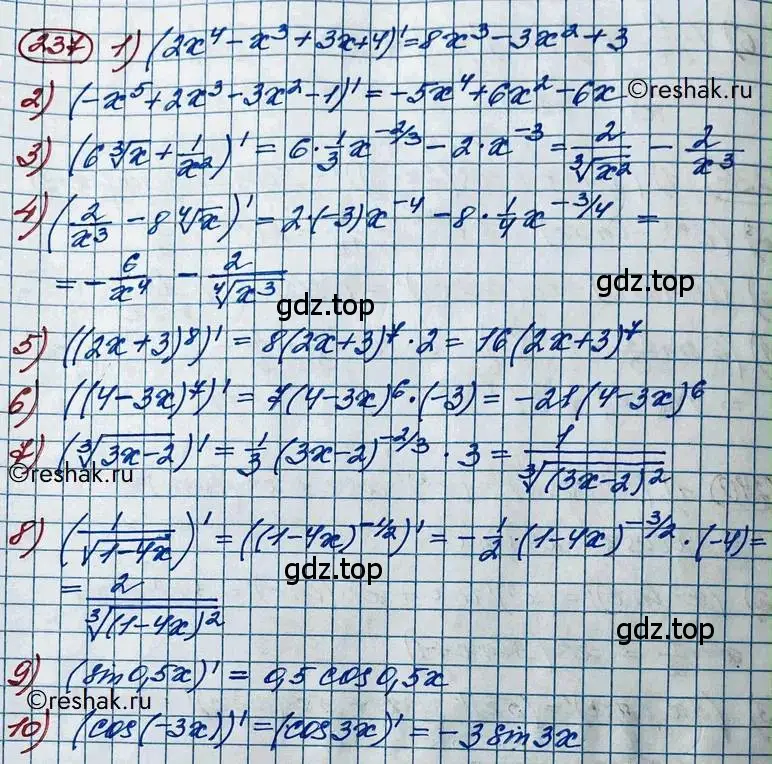 237 1) (2x⁴ - x³ + 3x + 4)' = 8x³ - 3x² + 3
2) (-x⁵ + 2x³ - 3x² - 1)' = -5x⁴ + 6x² - 6x ©reshak.ru
3) (6∛x + 1/x²)' = 6 · 1/3 x^(-2/3) - 2 · x⁻³ = 2/∛(x²) - 2/x³
4) (2/x³ - 8∜x)' = 2 · (-3)x⁻⁴ - 8 · 1/4 x^(-3/4) =
= -6/x⁴ - 2/∜(x³)
gdz.top
gdz.top
5) ((2x+3)⁸)' = 8(2x+3)⁷ · 2 = 16(2x+3)⁷
6) ((4-3x)⁷)' = 7(4-3x)⁶ · (-3) = -21(4-3x)⁶
7) (∛(3x-2))' = 1/3 (3x-2)^(-2/3) · 3 = 1/∛((3x-2)²)
©reshak.ru
8) (1/√(1-4x))' = ((1-4x)^(-1/2))' = -1/2 · (1-4x)^(-3/2) · (-4) =
= 2/∛((1-4x)²)
gdz.top
gdz.top
9) (sin 0,5x)' = 0,5 cos 0,5x
©reshak.ru
10) (cos(-3x))' = (cos 3x)' = -3 sin 3x